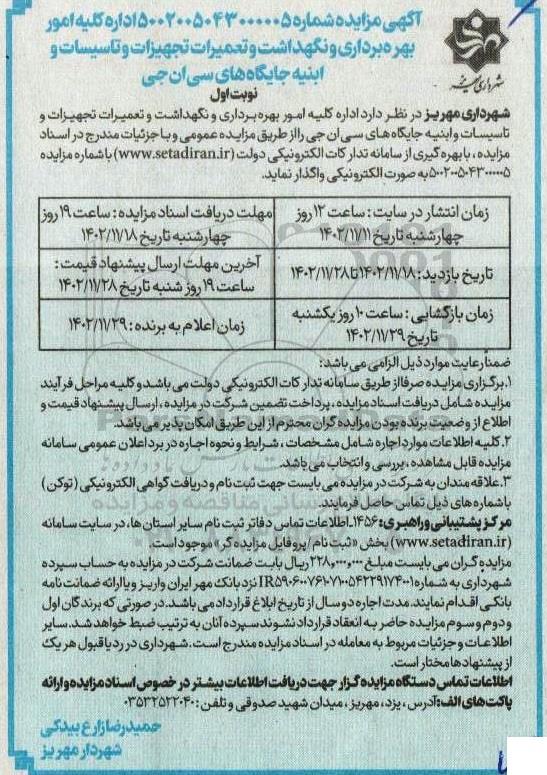 آگهی مزایده شماره ۵۰۰۲۰۰۵۰۴۳۰۰۰۰۰۵ اداره کلیه امور
بهره برداری و نگهداشت و تعمیرات تجهیزات و تاسیسات و
ابنیه جایگاه های سی ان جی
نوبت اول
شهرداری مهریز
شهرداری مهریز در نظر دارد اداره کلیه امور بهره برداری و نگهداشت و تعمیرات تجهیزات و
تاسیسات و ابنیه جایگاه های سی ان جی را از طریق مزایده عمومی و با جزئیات مندرج در اسناد
مزایده ، با بهره گیری از سامانه تدارکات الکترونیکی دولت (www.setadiran.ir) با شماره مزایده
۵۰۰۲۰۰۵۰۴۳۰۰۰۰۰۵ به صورت الکترونیکی واگذار نماید.
زمان انتشار در سایت : ساعت ۱۲ روز
چهارشنبه تاریخ ۱۴۰۲/۱۱/۱۱
مهلت دریافت اسناد مزایده : ساعت ۱۹ روز
چهارشنبه تاریخ ۱۴۰۲/۱۱/۱۸
تاریخ بازدید : ۱۴۰۲/۱۱/۱۸ تا ۱۴۰۲/۱۱/۲۸
آخرین مهلت ارسال پیشنهاد قیمت :
ساعت ۱۹ روز شنبه تاریخ ۱۴۰۲/۱۱/۲۸
زمان بازگشایی : ساعت ۱۰ روز یکشنبه
تاریخ ۱۴۰۲/۱۱/۲۹
زمان اعلام به برنده : ۱۴۰۲/۱۱/۲۹
ضمنا رعایت موارد ذیل الزامی می باشد :
۱. برگزاری مزایده صرفا از طریق سامانه تدارکات الکترونیکی دولت می باشد و کلیه مراحل فرآیند
مزایده شامل دریافت اسناد مزایده ، پرداخت تضمین شرکت در مزایده ، ارسال پیشنهاد قیمت و
اطلاع از وضعیت برنده بودن مزایده گران محترم از این طریق امکان پذیر می باشد.
۲. کلیه اطلاعات موارد اجاره شامل مشخصات ، شرایط و نحوه اجاره در برد اعلان عمومی سامانه
مزایده قابل مشاهده ، بررسی و انتخاب می باشد.
۳. علاقه مندان به شرکت در مزایده می بایست جهت ثبت نام و دریافت گواهی الکترونیکی (توکن)
با شماره های ذیل تماس حاصل فرمایند.
مرکز پشتیبانی و راهبری : ۱۴۵۶. اطلاعات تماس دفاتر ثبت نام سایر استان ها ، در سایت سامانه
(www.setadiran.ir) بخش «ثبت نام / پروفایل مزایده گر» موجود است.
مزایده گران می بایست مبلغ ۲۲۸,۰۰۰,۰۰۰ ریال بابت ضمانت شرکت در مزایده به حساب سپرده
شهرداری به شماره IR۵۹۰۶۰۰۷۶۱۰۷۱۰۰۵۴۲۲۹۱۷۴۰۰۱ نزد بانک مهر ایران واریز و یا ارائه ضمانت نامه
بانکی اقدام نمایند. مدت اجاره دو سال از تاریخ ابلاغ قرارداد می باشد. در صورتی که برندگان اول
و دوم و سوم مزایده حاضر به انعقاد قرارداد نشوند سپرده آنان به ترتیب ضبط خواهد شد. سایر
اطلاعات و جزئیات مربوط به معامله در اسناد مزایده مندرج است. شهرداری در رد یا قبول هر یک
از پیشنهادها مختار است.
اطلاعات تماس دستگاه مزایده گزار جهت دریافت اطلاعات بیشتر در خصوص اسناد مزایده و ارائه
پاکت های الف : آدرس ، یزد ، مهریز ، میدان شهید صدوقی و تلفن : ۰۳۵۳۲۵۲۲۰۴۰
حمیدرضا زارع بیدکی
شهردار مهریز